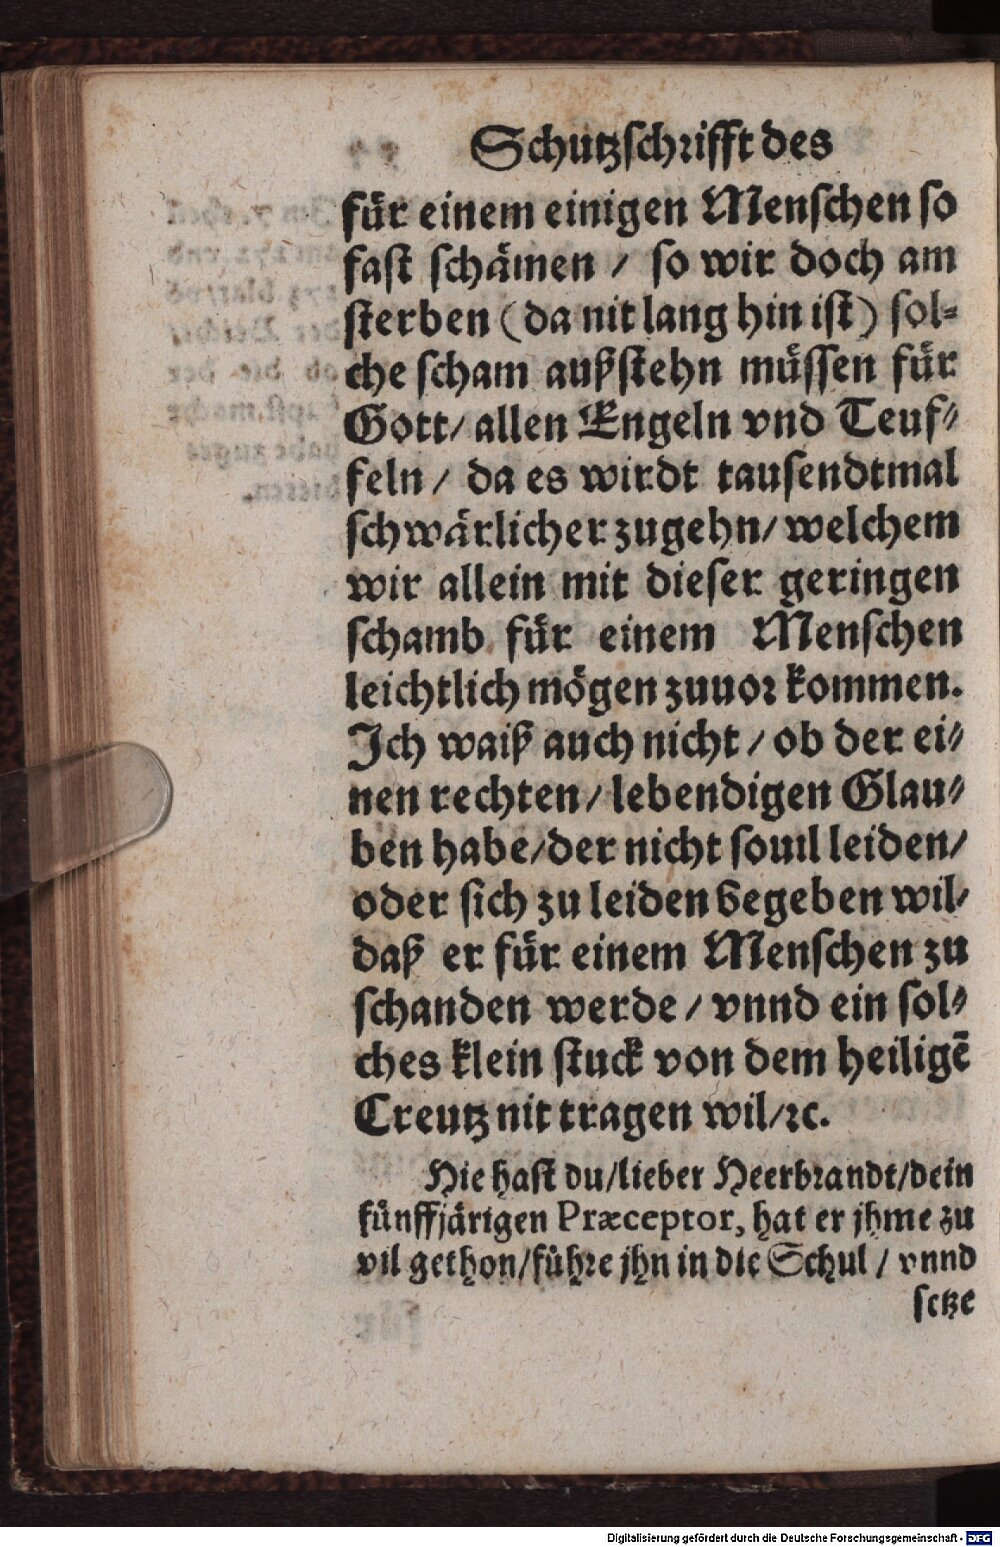 Schutzschrifft des
für einem einigen Menschen so
fast schämen / so wir doch am
sterben (da nit lang hin ist) sol-
che scham außstehn müssen für
Gott / allen Engeln vnd Teuf-
feln / da es wirdt tausendtmal
schwärlicher zugehn / welchem
wir allein mit dieser geringen
schamb für einem Menschen
leichtlich mögen zuuor kommen.
Ich waiß auch nicht / ob der ei-
nen rechten / lebendigen Glau-
ben habe / der nicht souil leiden /
oder sich zu leiden begeben wil /
daß er für einem Menschen zu
schanden werde / vnnd ein sol-
ches klein stuck von dem heiligē
Creutz nit tragen wil / ꝛc.
Hie hast du / lieber Heerbrandt / dein
fünffjärigen Præceptor, hat er jhme zu
vil gethon / führe jhn in die Schul / vnnd
setze
Digitalisierung gefördert durch die Deutsche Forschungsgemeinschaft - DFG